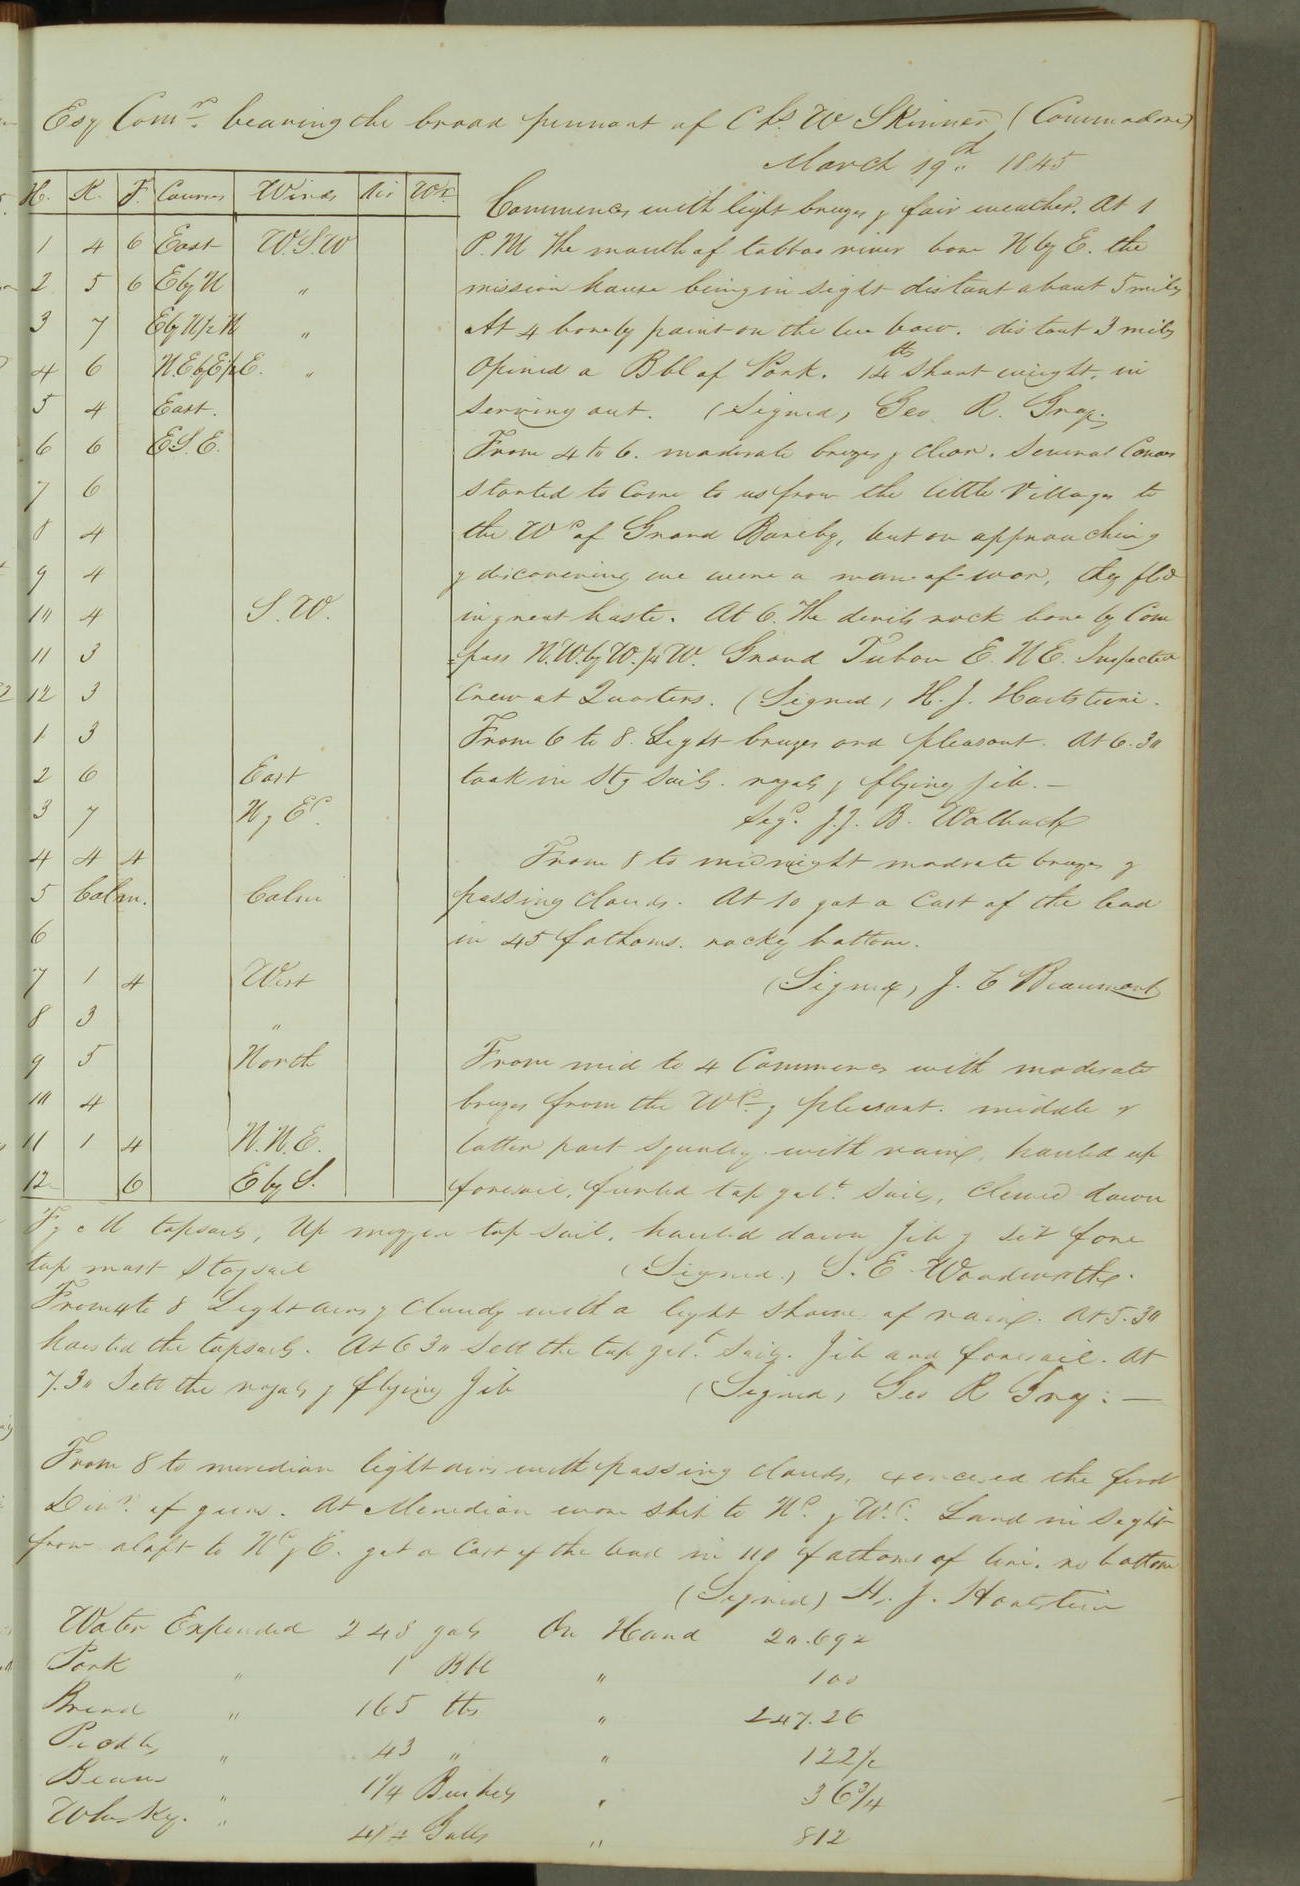 Esq Comr. bearing the broad pennant of Chs. W Skinner (Commodore)
March 19th 1845
H. K. F. Courses Winds Air Wr.
1 4 6 East W.S.W
2 5 6 E by N "
3 7 E by N ½ N "
4 6 N.E by E ½ E. "
5 4 East.
6 6 E.S.E.
7 6
8 4
9 4
10 4 S.W.
11 3
12 3
1 3
2 6 East
3 7 N & Ed.
4 4 4
5 Calm. Calm
6
7 1 4 West
8 3 "
9 5 North
10 4
11 1 4 N.N.E.
12 6 E by S.
Commences with light breezes & fair weather. At 1
P.M The mouth of river bore N by E. the
mission house being in sight distant about 5 miles
At 4 point on the lee bow. distant 3 miles
Opened a Bbl of Pork. 14 lbs short weight, in
serving out. (Signed) Geo. R. Gray.
From 4 to 6. moderate breezes & clear. Several Canoes
started to come to us from the little Villages to
the Wd of Grand Bereby, but on approaching
& discovering we were a man-of-war, they fled
in great haste. At 6. The devils rock bore by Com
=pass N.W. by W. ¼ W. Grand Tabou E.N.E. Inspected
Crew at Quarters. (Signed) H. J. Hartstene.
From 6 to 8. Light breezes and pleasant. At 6.30
took in Stg sails. royals & flying jib. —
Sigd. J.J. B. Walbach
From 8 to midnight modrate breezes &
passing clouds. At 10 got a Cast of the lead
in 45 fathoms. rocky bottom.
(Signed) J. C Beaumont
From mid to 4 Commences with moderate
breezes from the Wd. & pleasant. middle &
latter part squally with rain, hauled up
foresail, furled top galt. sails, clewed down
F & M topsails, Up mizzen top sail, hauled down Jib & set fore
top mast Staysail (Signed.) S. E Woodworth.
From 4 to 8 Light airs & Cloudy with a light shower of rain. At 5.30
hoisted the topsails. At 6 30 Sett the top galt. Sails. Jib and foresail. At
7.30 Sett the royals & flying Jib (Signed) Geo R Gray: —
From 8 to meridian light airs with passing clouds, exercised the first
Divn. of guns. At Meridian wore ship to Nd. & Wd. Land in sight
from aloft to Nd & E. got a Cast of the lead in 110 fathoms of line. no bottom
(Signed) H. J. Hartstein
Water Expended 248 gals On Hand 20.692
Pork " 1 Bbl " 100
Bread " 165 lbs " 247.26
Pickles " 43 " " 122½
Beans " 1¼ Bushels " 36¾
Whisky. " 4¼ Galls " 812